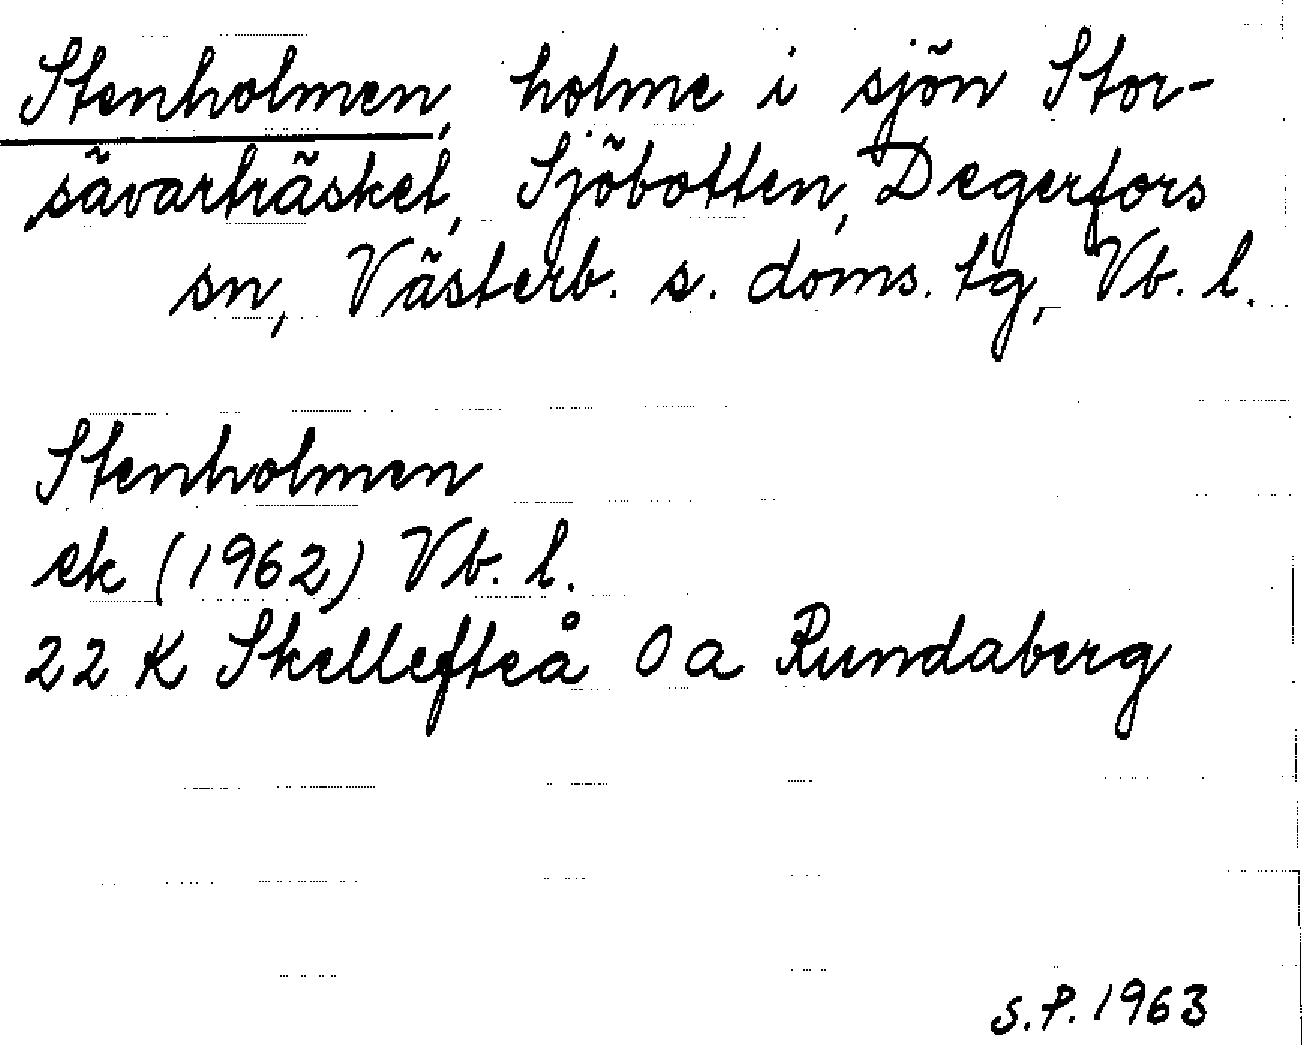 Stenholmen, holme i sjön Stor-
sävarträsket, Sjöbotten, Degerfors
sn, Västerb. s. doms. tg, Vb. l.
Stenholmen
ek (1962) Vb. l.
22 K Skellefteå 0 a Rundaberg
S.P. 1963